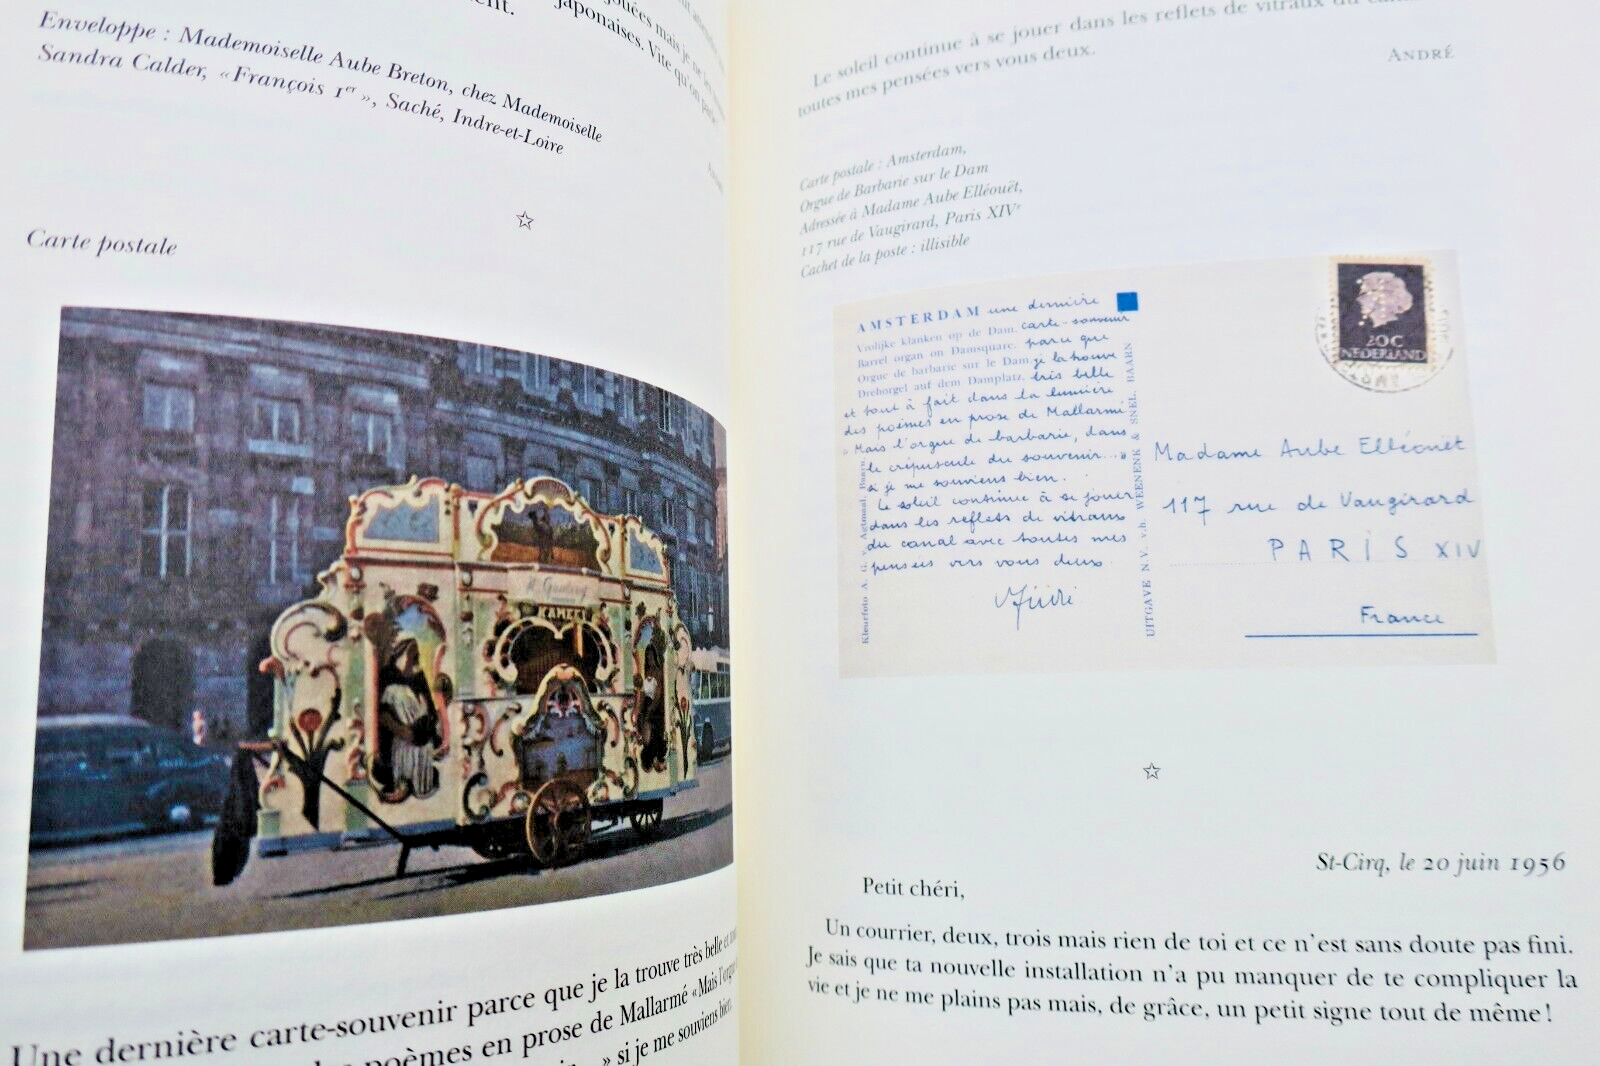 jouées mais je ne les
japonaises. Vite qu'on parte
Enveloppe : Mademoiselle Aube Breton, chez Mademoiselle
Sandra Calder, « François 1er », Saché, Indre-et-Loire
☆
Carte postale
KAMEEL
Une dernière carte-souvenir parce que je la trouve très belle et tout
poèmes en prose de Mallarmé « Mais l'orgue
» si je me souviens bien.
Le soleil continue à se jouer dans les reflets de vitraux du canal
toutes mes pensées vers vous deux.
ANDRÉ
Carte postale : Amsterdam,
Orgue de Barbarie sur le Dam
Adressée à Madame Aube Elléouët,
117 rue de Vaugirard, Paris XIVe
Cachet de la poste : illisible
AMSTERDAM une dernière
Vrolijke klanken op de Dam. carte-souvenir
Barrel organ on Damsquare. parce que
Orgue de barbarie sur le Dam. je la trouve
Drehorgel auf dem Damplatz. très belle
et tout à fait dans la lumière
des poèmes en prose de Mallarmé
« Mais l'orgue de barbarie, dans
le crépuscule du souvenir... »
si je me souviens bien.
Le soleil continue à se jouer
dans les reflets de vitraux
du canal avec toutes mes
pensées vers vous deux.
André
Kleurfoto A. G. v. Agtmaal, Baarn.
UITGAVE N.V. v.h. WEENENK & SNEL, BAARN
20C
NEDERLAND
Madame Aube Elléouët
117 rue de Vaugirard
PARIS XIV
France
☆
St-Cirq, le 20 juin 1956
Petit chéri,
Un courrier, deux, trois mais rien de toi et ce n'est sans doute pas fini.
Je sais que ta nouvelle installation n'a pu manquer de te compliquer la
vie et je ne me plains pas mais, de grâce, un petit signe tout de même !